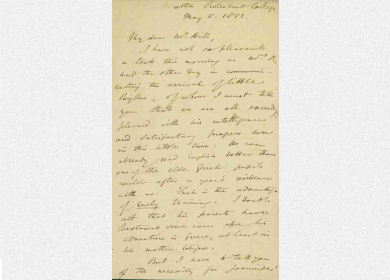 Malta Protestant College
May 5. 1852.
My dear Mr. Hill,
I have not so pleasant
a task this morning as Mrs.
had the other day in communi-
cating the arrival of little
of whom I must tell
you that we are all exceedingly
pleased with his intelligence
and satisfactory progress even
in this little time. He can
already read English better than
one of the older Greek pupils
could after a year's residence
with us. Such is the advantage
of early training. I doubt
not that his parents have
bestowed some care upon his
education in Greece, at least in
his mother tongue.
But I have to tell you
of the necessity for